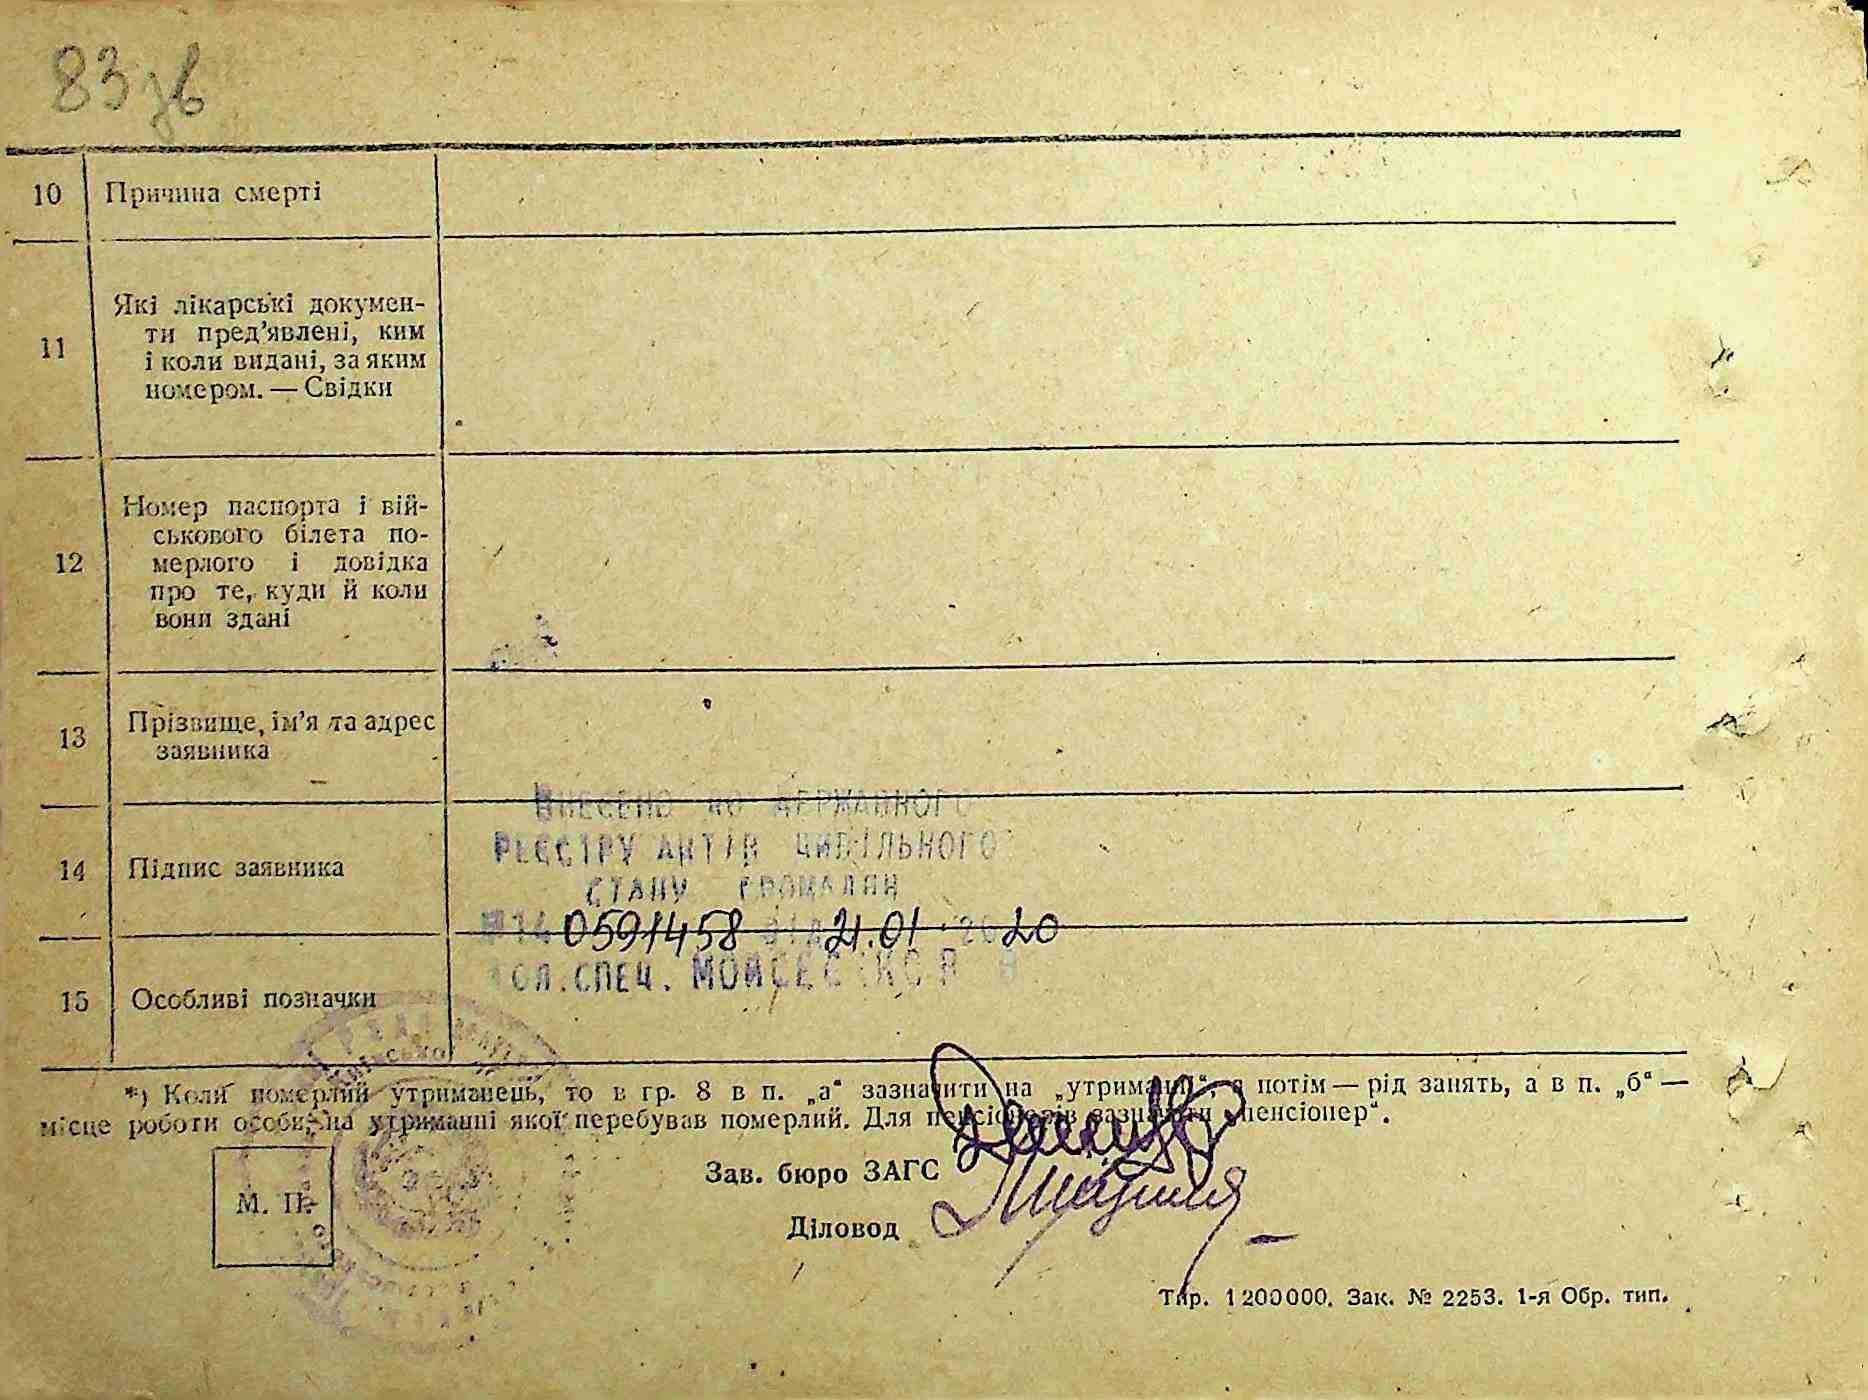 83 зв
10 Причина смерті
11 Які лікарські докумен-
ти пред’явлені, ким
і коли видані, за яким
номером. — Свідки
12 Номер паспорта і вій-
ськового білета по-
мерлого і довідка
про те, куди й коли
вони здані
13 Прізвище, ім’я та адрес
заявника
ВНЕСЕНО ДО ДЕРЖАВНОГО
РЕЄСТРУ АКТІВ ЦИВІЛЬНОГО
14 Підпис заявника
СТАНУ ГРОМАДЯН
0591458 ВІД 21.01.2020
ГОЛ.СПЕЦ.
15 Особливі позначки
*) Коли померлий утриманець, то в гр. 8 в п. „а“ зазначити на „утриманні“, а потім — рід занять, а в п. „б“ —
місце роботи особи, на утриманні якої перебував померлий. Для пенсіонерів зазначити „пенсіонер“.
Зав. бюро ЗАГС
М. П.
Діловод
Тир. 1200000. Зак. № 2253. 1-я Обр. тип.